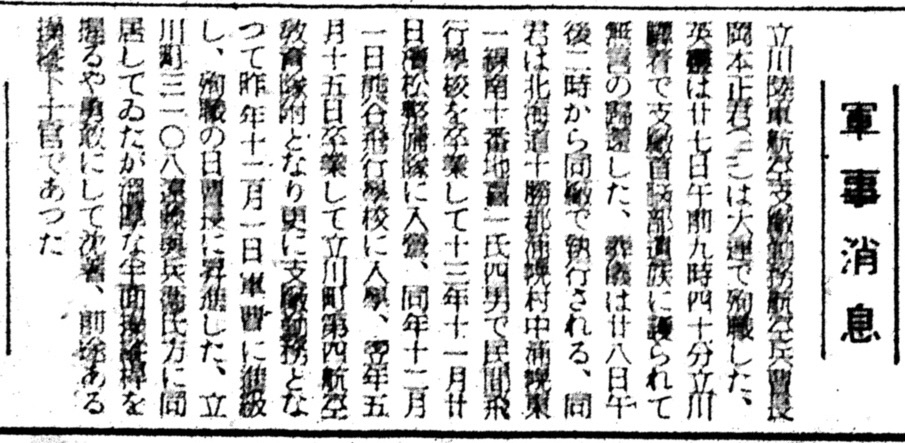 軍事消息
立川陸軍航空支廠勤務航空兵曹長
岡本正君(三三)は大連で殉職した、
英霊は廿七日午前九時四十分立川
驛着で支廠首脳部遺族に護られて
無言の歸還した、葬儀は廿八日午
後二時から同廠で執行される、同
君は北海道十勝郡浦幌村中浦幌東
一線南十番地 一氏四男で民間飛
行學校を卒業して十三年十一月廿
日濱松整備隊に入營、同年十二月
一日熊谷飛行學校に入學、翌年五
月十五日卒業して立川町第四航空
教育隊附となり更に支廠勤務とな
つて昨年十二月一日軍曹に進級
し、殉職の日曹長に昇進した、立
川町三一〇八 氏方に同
居してゐたが温厚な半面操縦桿を
握るや勇敢にして沈着、前途ある
操縦下士官であつた